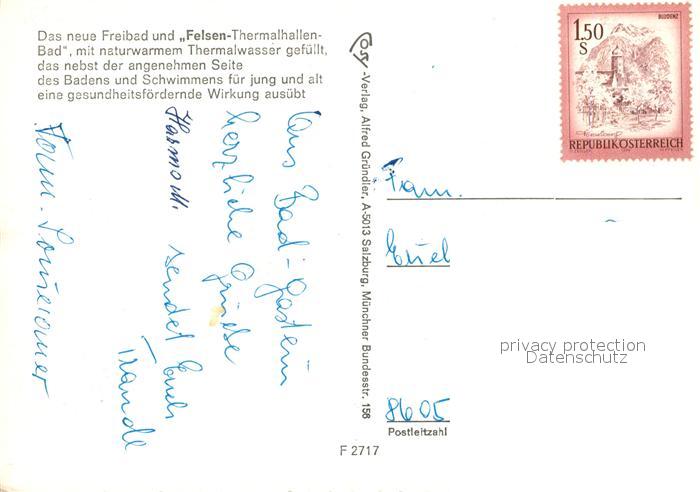 Das neue Freibad und „Felsen-Thermalhallen-
Bad", mit naturwarmem Thermalwasser gefüllt,
das nebst der angenehmen Seite
des Badens und Schwimmens für jung und alt
eine gesundheitsfördernde Wirkung ausübt
Aus Bad-Gastein
herzliche Grüße
sendet Euch
Traudl
Fam.
cosy-Verlag, Alfred Gründler, A-5013 Salzburg, Münchner Bundesstr. 156
BLUDENZ
1.50
S
REPUBLIK ÖSTERREICH
Fam.
8605
Postleitzahl
F 2717
privacy protection
Datenschutz